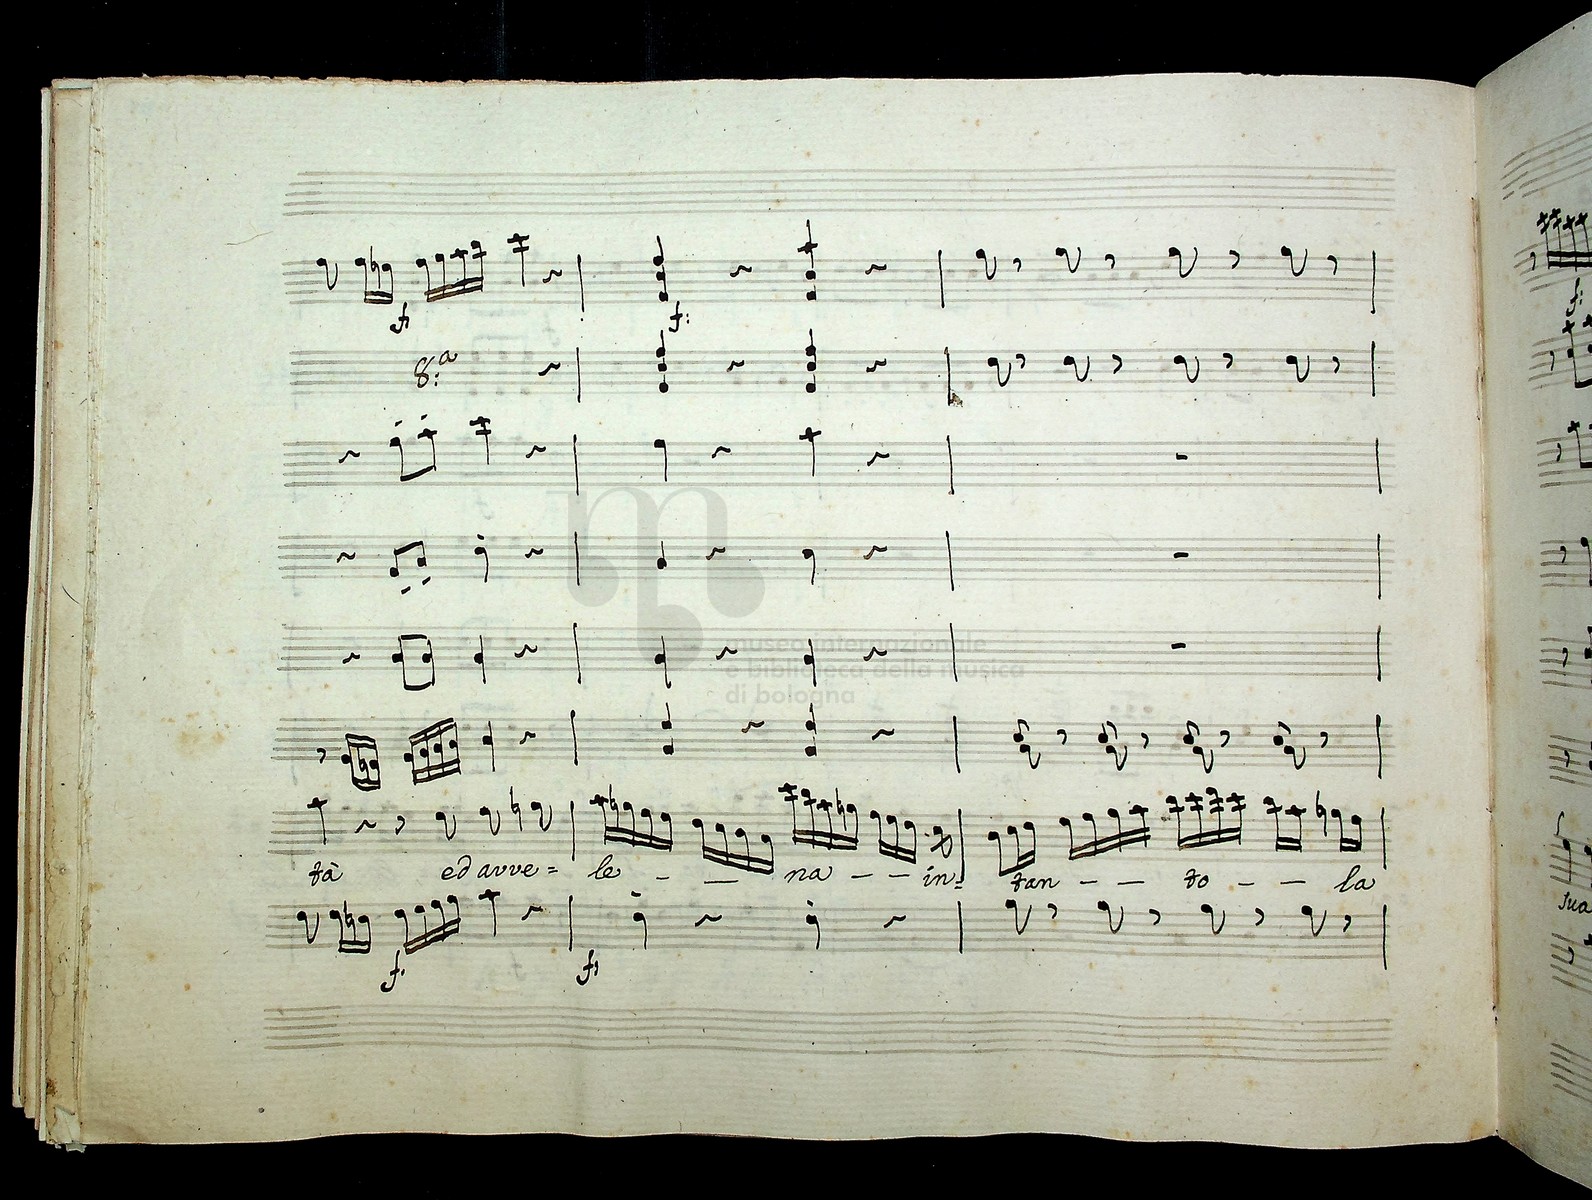 f:
f:
8:a
museo internazionale
e biblioteca della musica
di bologna
tà ed avve= le - — na — — in= tan — — to — — la
f:
f:
f:
sua